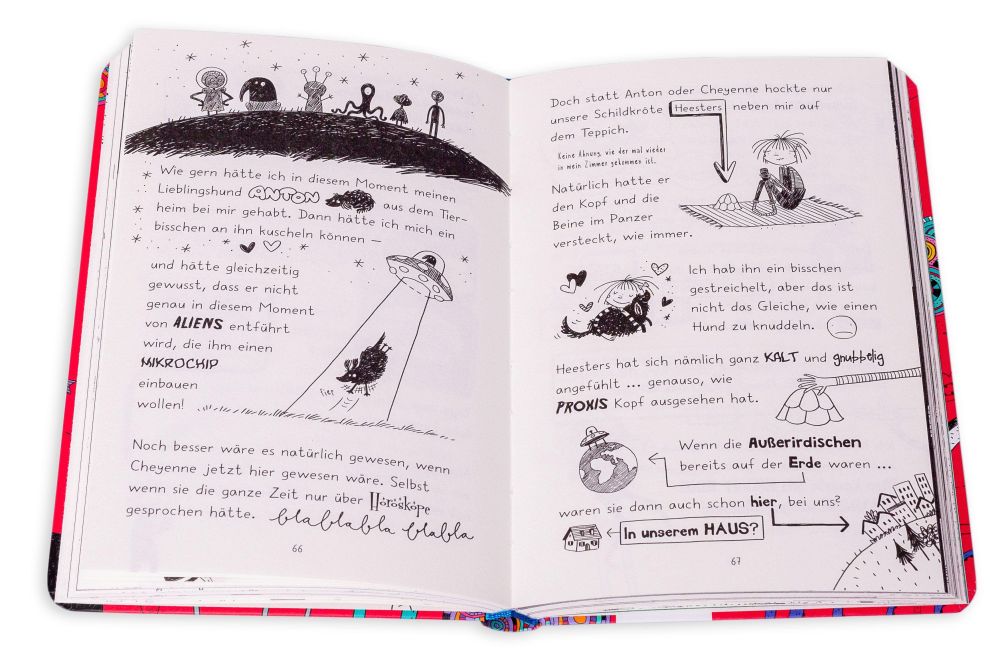 Wie gern hätte ich in diesem Moment meinen
Lieblingshund ANTON aus dem Tier-
heim bei mir gehabt. Dann hätte ich mich ein
bisschen an ihn kuscheln können –
und hätte gleichzeitig
gewusst, dass er nicht
genau in diesem Moment
von ALIENS entführt
wird, die ihm einen
MIKROCHIP
einbauen
wollen!
fier
Noch besser wäre es natürlich gewesen, wenn
Cheyenne jetzt hier gewesen wäre. Selbst
wenn sie die ganze Zeit nur über Horoskope
gesprochen hätte. blablabla blabla
66
Doch statt Anton oder Cheyenne hockte nur
unsere Schildkröte Heesters neben mir auf
dem Teppich.
Keine Ahnung, wie der mal wieder
in mein Zimmer gekommen ist.
Natürlich hatte er
den Kopf und die
Beine im Panzer
versteckt, wie immer.
Ich hab ihn ein bisschen
gestreichelt, aber das ist
nicht das Gleiche, wie einen
Hund zu knuddeln.
Heesters hat sich nämlich ganz KALT und gnubbelig
angefühlt ... genauso, wie
PROXIS Kopf ausgesehen hat.
Wenn die Außerirdischen
bereits auf der Erde waren ...
waren sie dann auch schon hier, bei uns?
In unserem HAUS?
67